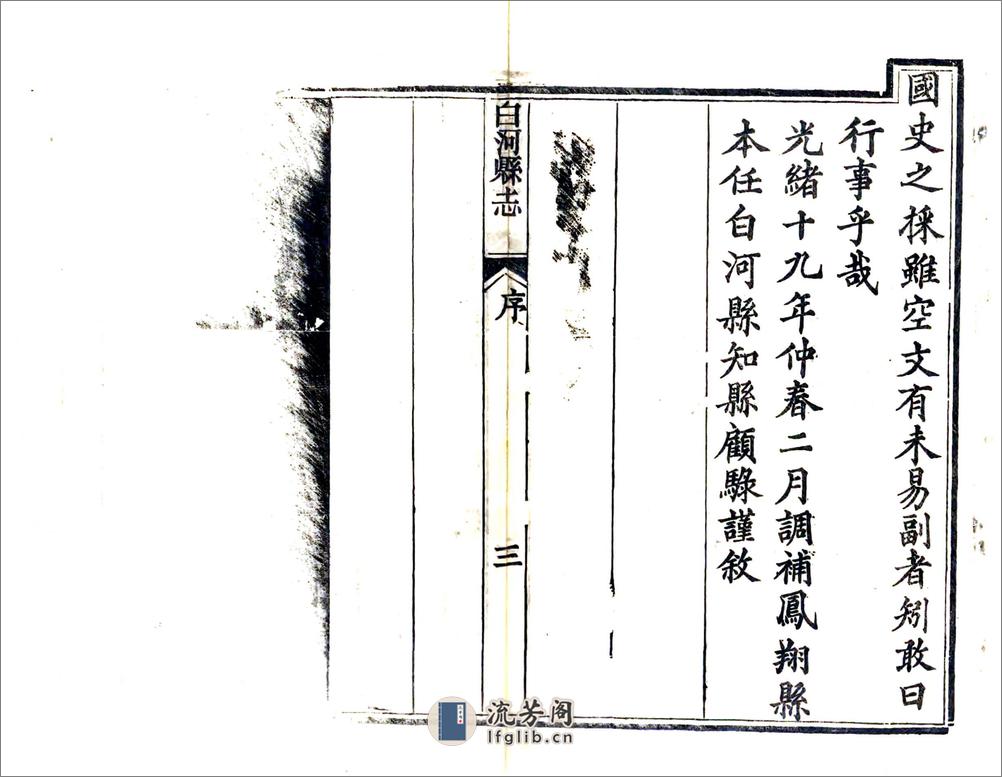 國史之採雖空文有未易副者矧敢曰
行事乎哉
光緒十九年仲春二月調補鳳翔縣
本任白河縣知縣顧騄謹敘
白河縣志
序
三
流芳阁
lfglib.cn